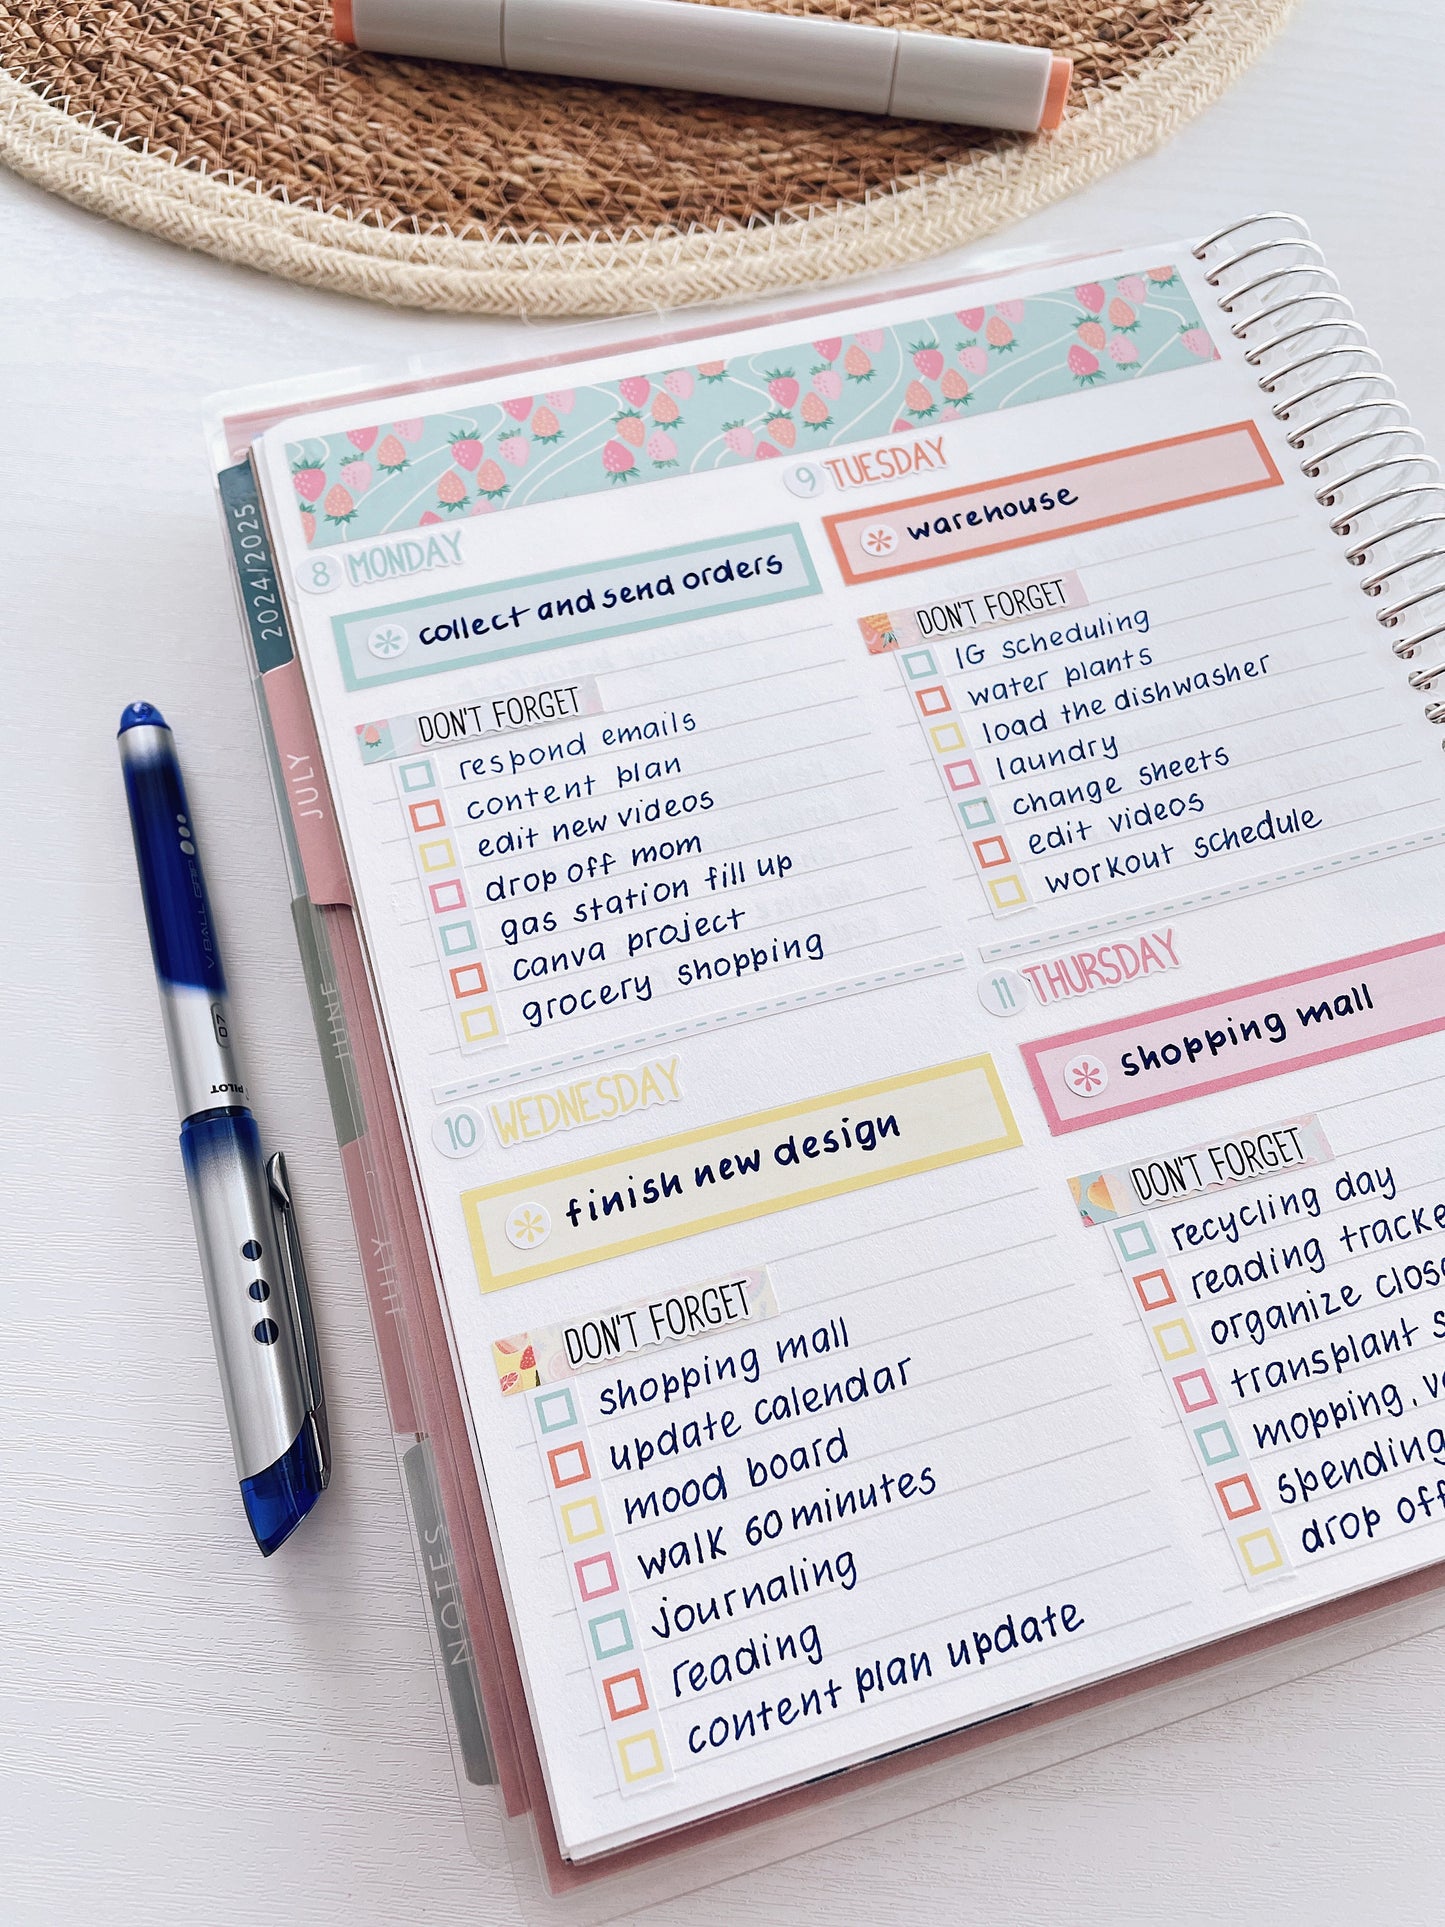 9 TUESDAY
warehouse
8 MONDAY
collect and send orders
DON'T FORGET
respond emails
content plan
edit new videos
drop off mom
gas station fill up
canva project
grocery shopping
DON'T FORGET
IG scheduling
water plants
load the dishwasher
laundry
change sheets
edit videos
workout schedule
10 WEDNESDAY
finish new design
DON'T FORGET
shopping mall
update calendar
mood board
walk 60 minutes
journaling
reading
content plan update
11 THURSDAY
shopping mall
DON'T FORGET
recycling day
reading
organize
transplant
mopping,
spending
drop off
2024/2025
JULY
JUNE
JULY
NOTES
V BALL GRIP
07
PILOT